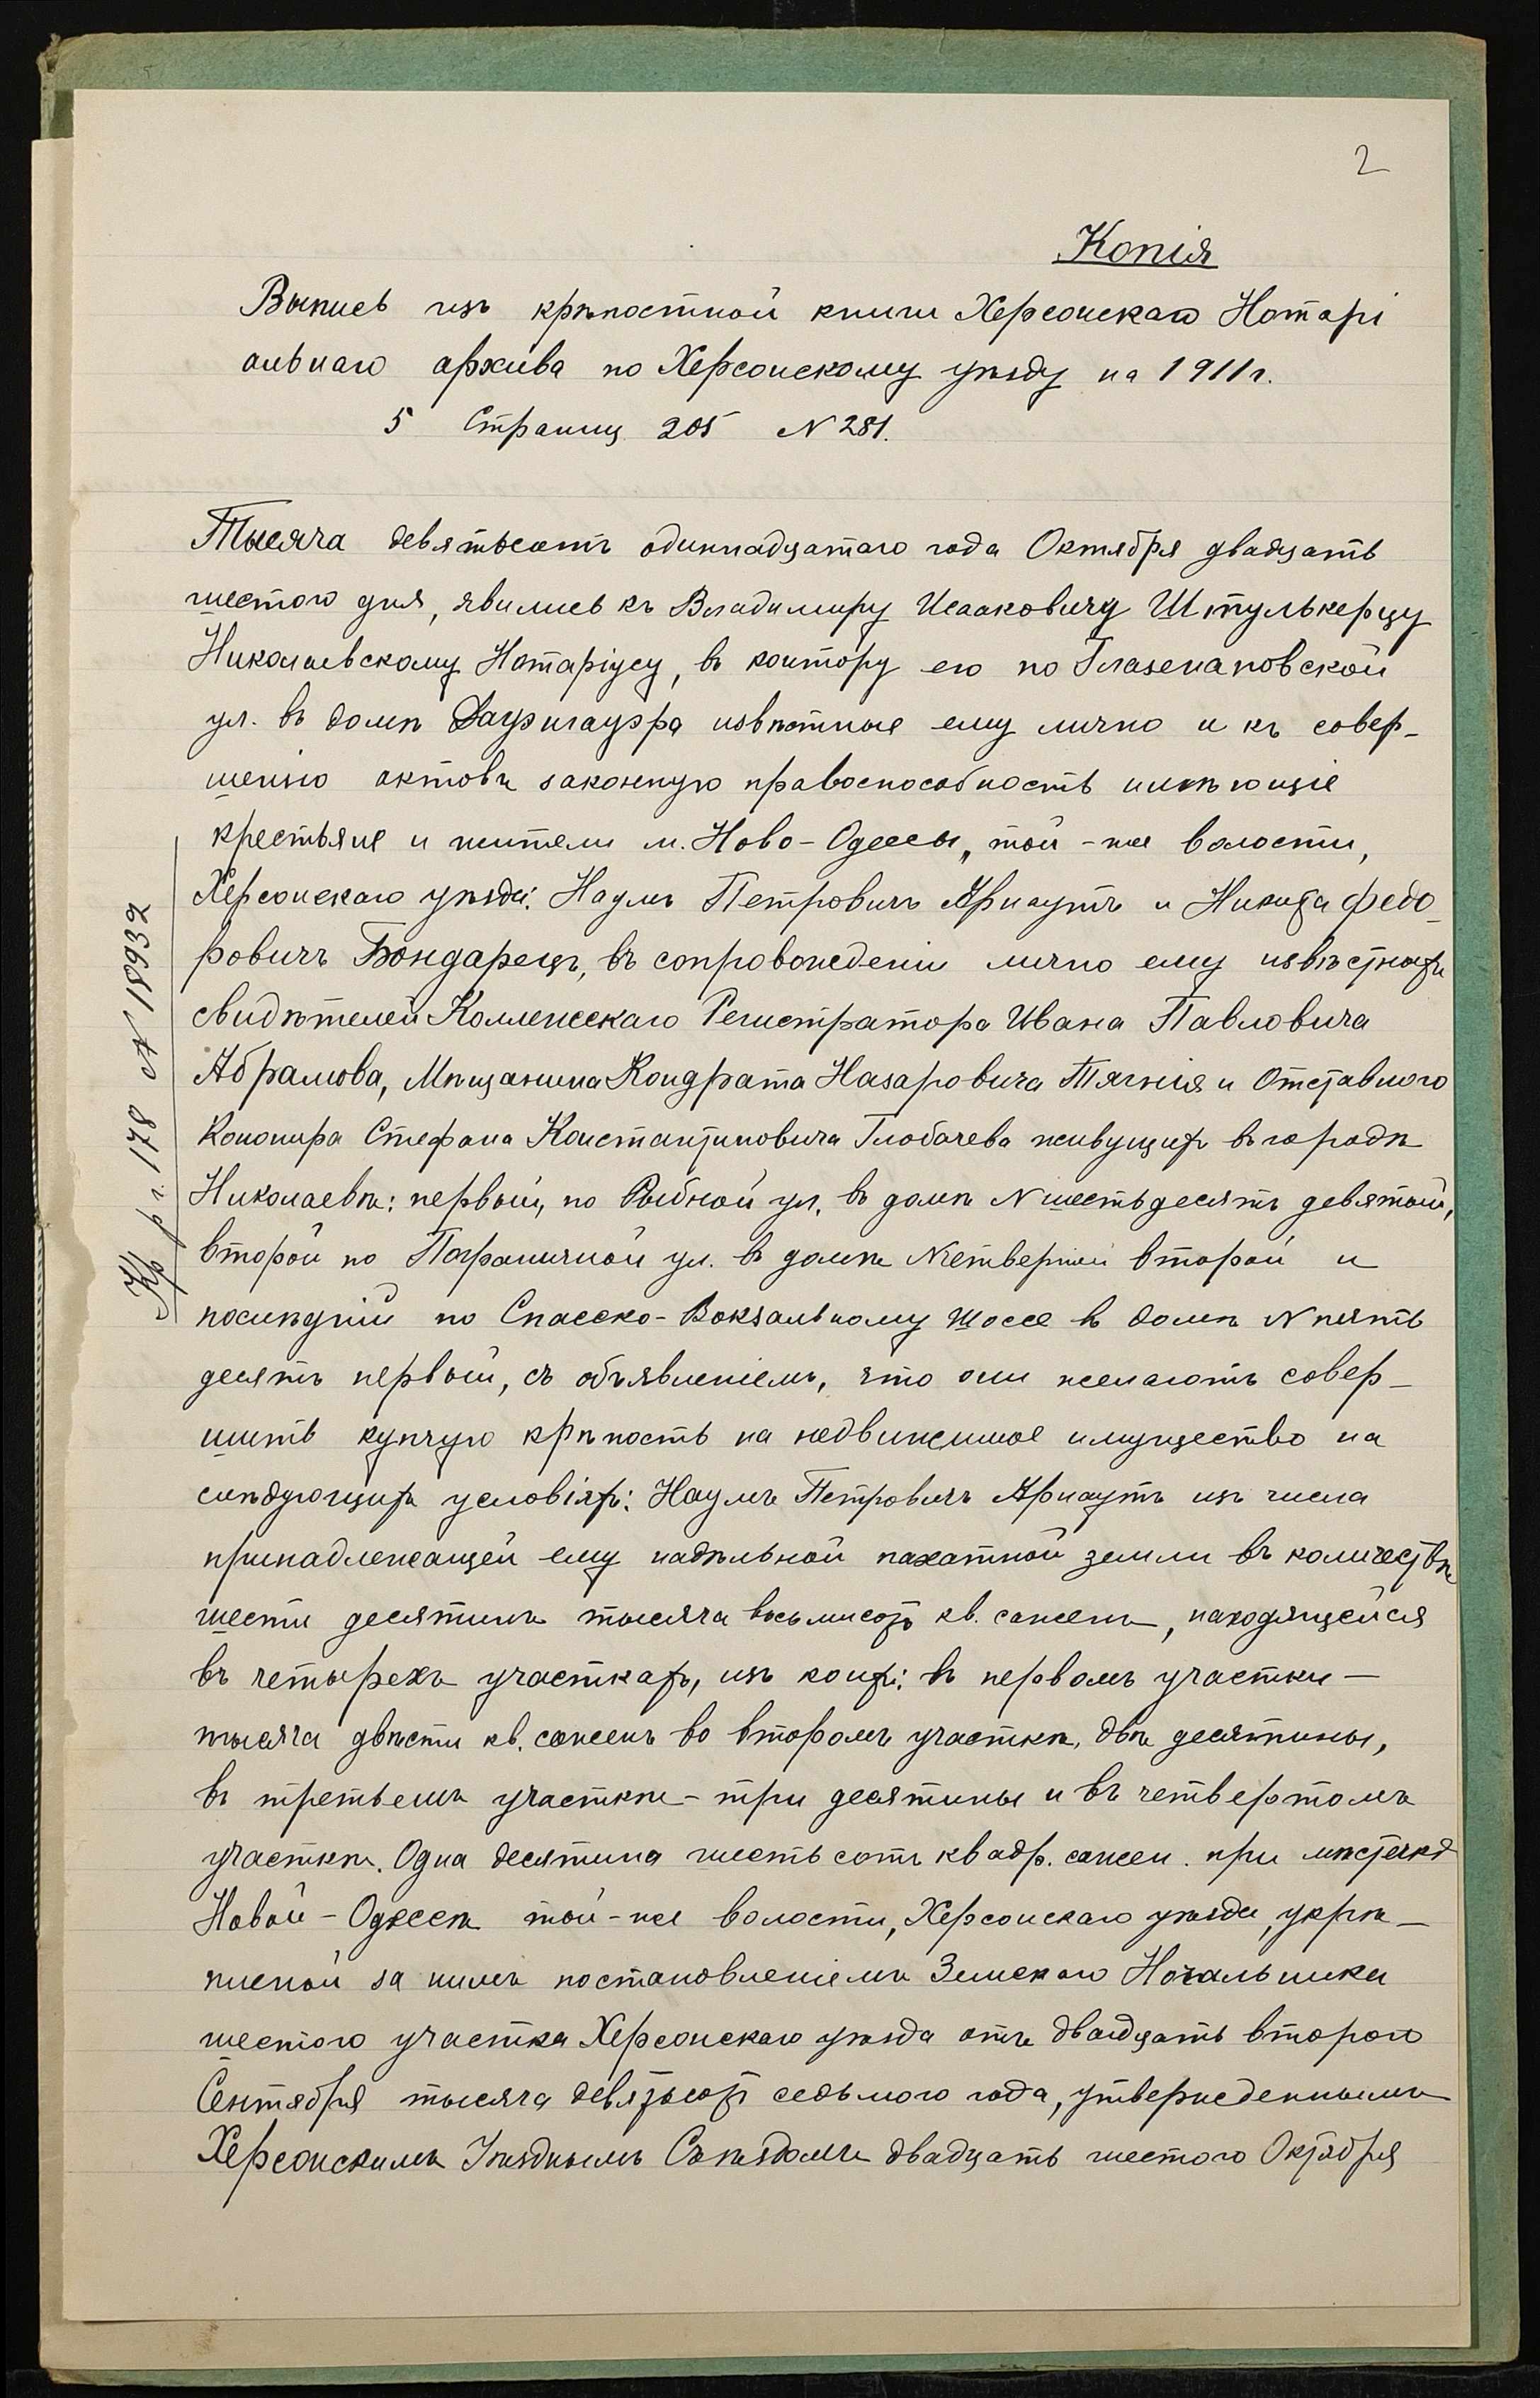 2
Копія
Выпись изъ крѣпостной книги Херсонскаго Нотарі
альнаго архива по Херсонскому уѣзду на 1911 г.
5 Страниц 205 N 281.
Тысяча девятьсотъ одиннадцатаго года Октября двадцать
шестого дня, явились къ Владимиру Исааковичу Штулькерцу
Николаевскому Нотаріусу, въ контору его по Глазенаповской
ул. въ домѣ извѣстные ему лично и къ совер-
шенію актовъ законную правоспособность имѣющіе
крестьяне и жители м. Ново-Одессы, той-же волости,
Херсонскаго уѣзда: Наумъ Петровичъ Арнаутъ и Никита Федо-
ровичъ Бондарецъ, въ сопровожденіи лично ему извѣстныхъ
свидѣтелей Коллежскаго Регистратора Ивана Павловича
Абрамова, Мѣщанина Кондрата Назаровича Тягнія и Отставного
Канонира Стефана Константиновича Глобачева живущихъ въ городѣ
Николаевѣ: первый, по Рыбной ул. въ домѣ N шестьдесятъ девятый,
второй по Пограничной ул. въ домѣ N четвертый второй и
послѣдній по Спасско-Вокзальному шоссе въ домѣ N пять
десятъ первый, съ объявленіемъ, что они желаютъ совер-
шить купчую крѣпость на недвижимое имущество на
слѣдующихъ условіяхъ: Наумъ Петровичъ Арнаутъ изъ числа
принадлежащей ему надѣльной пахатной земли въ количествѣ
шести десятинъ тысяча восьмисотъ кв. сажень, находящейся
въ четырехъ участкахъ, изъ коихъ: въ первомъ участки —
тысяча двѣсти кв. сажень во второмъ участкѣ, двѣ десятины,
въ третьемъ участкѣ - три десятины и въ четвертомъ
участкѣ. Одна десятина шестьсотъ квадр. сажен. при мѣстечкѣ
Новой-Одессѣ той-же волости, Херсонскаго уѣзда, укрѣ-
пленой за нимъ постановленіемъ Земскаго Начальника
шестого участка Херсонскаго уѣзда отъ двадцать второго
Сентября тысяча девятьсотъ седьмого года, утвержденнымъ
Херсонскимъ Уѣзднымъ Съѣздомъ двадцать шестого Октября
Кр р г. 178 N 18932